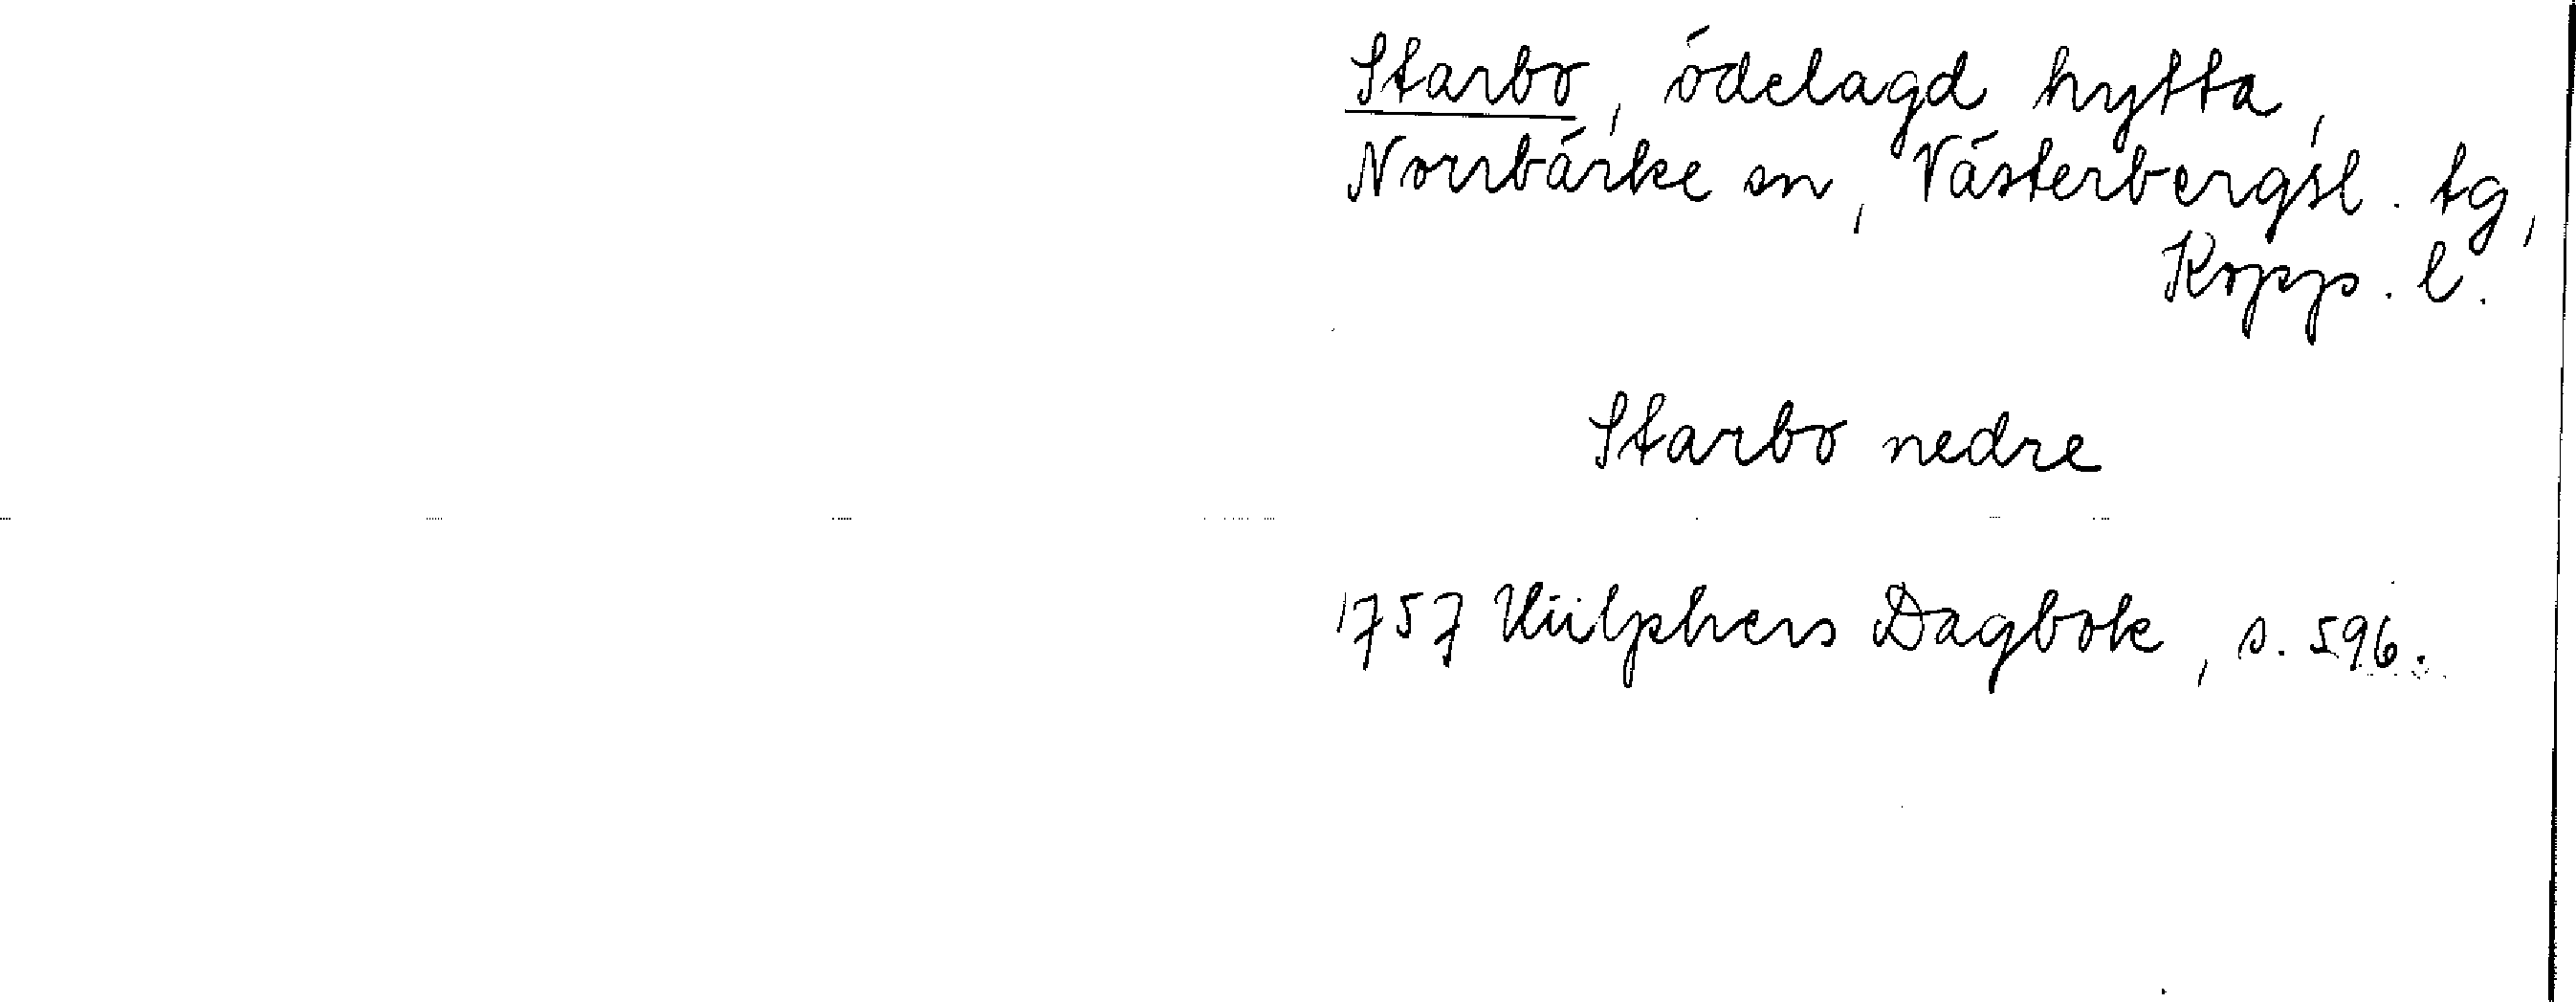 Starbo, ödelagd hytta,
Norrbärke sn, Västerbergsl. tg,
Kopp. l.
Starbo nedre
1757 Hülphers Dagbok, s. 596.